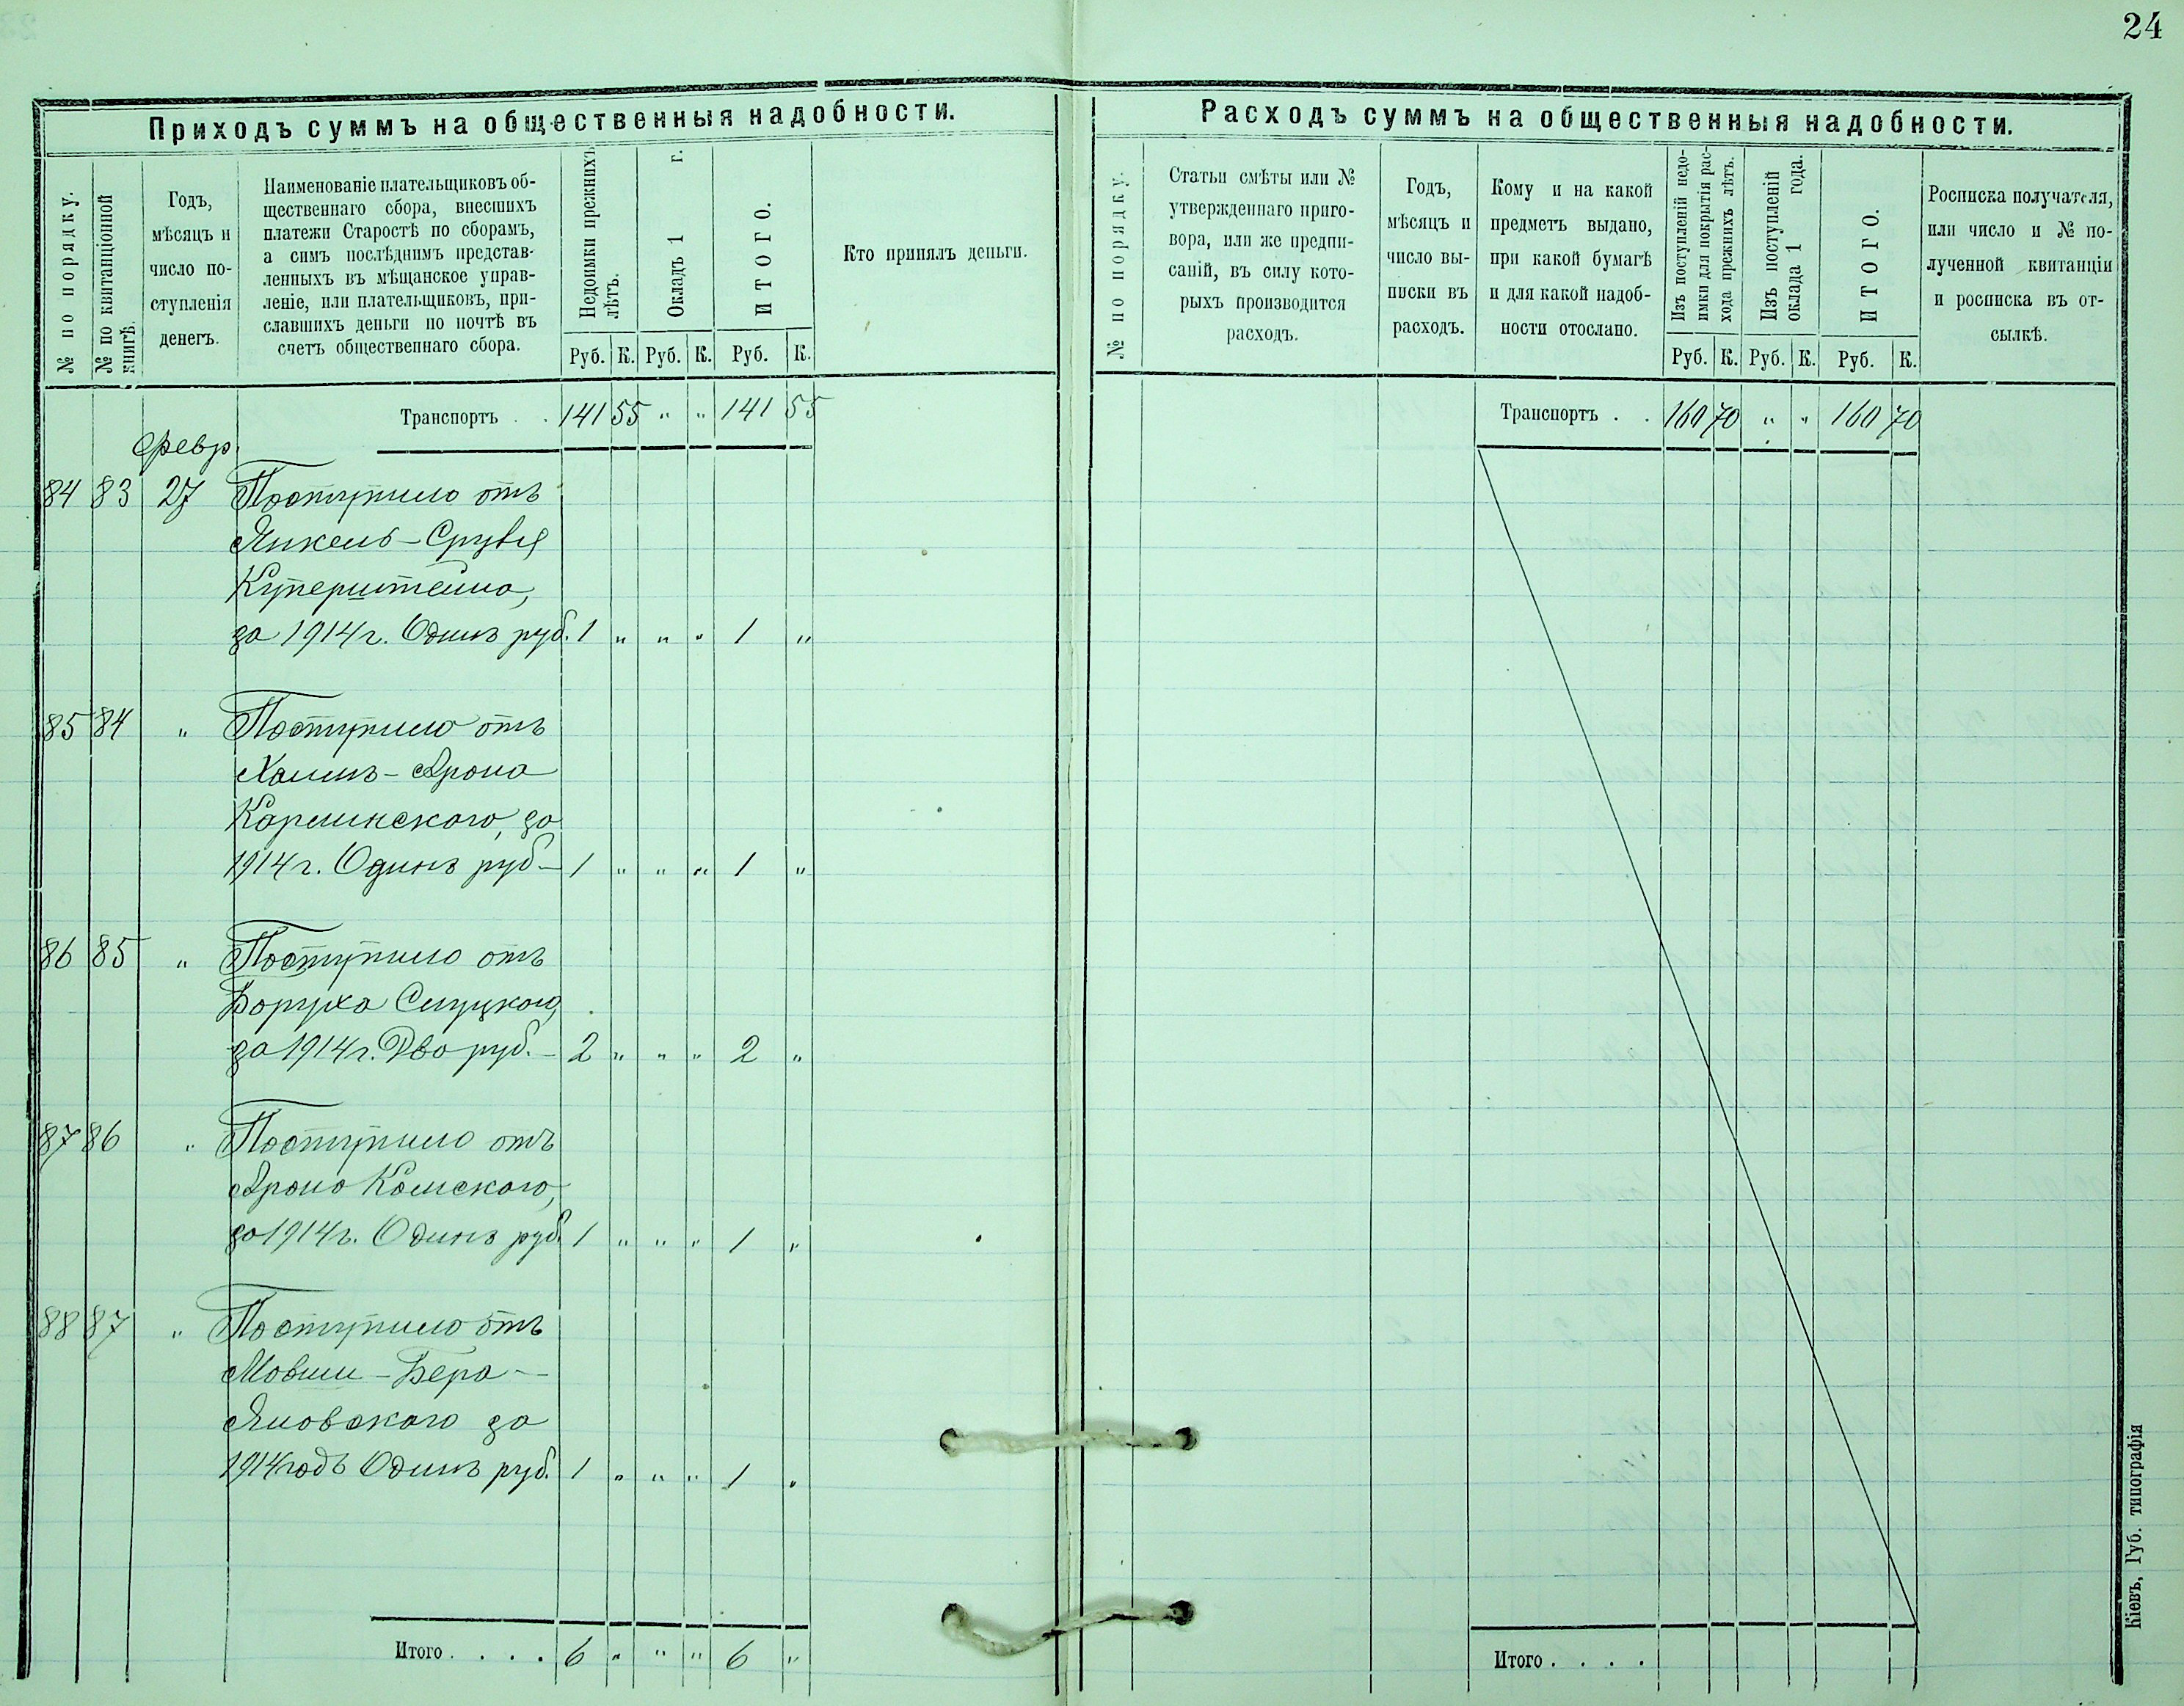 24
Приходъ суммъ на общественныя надобности.
№ по порядку.
№ по квитанціонной
книгѣ.
Годъ,
мѣсяцъ и
число по-
ступленія
денегъ.
Наименованіе плательщиковъ об-
щественнаго сбора, внесшихъ
платежи Старостѣ по сборамъ,
а симъ послѣднимъ представ-
ленныхъ въ мѣщанское управ-
леніе, или плательщиковъ, при-
славшихъ деньги по почтѣ въ
счетъ общественнаго сбора.
Недоимки прежнихъ
лѣтъ.
Окладъ 1 г.
ИТОГО.
Руб. К. Руб. К. Руб. К.
Кто принялъ деньги.
Транспортъ . . 141 55 " " 141 55
Февр.
84 83 27 Поступило отъ
Янкель-Срувля
Куперштейна,
за 1914 г. Одинъ руб. 1 " " " 1 "
85 84 " Поступило отъ
Хаимъ-Арона
Карлинского, за
1914 г. Одинъ руб - 1 " " " 1 "
86 85 " Поступило отъ
Боруха Слуцкого,
за 1914 г. Два руб. - 2 " " " 2 "
87 86 " Поступило отъ
Арона Камского,
за 1914 г. Одинъ руб. 1 " " " 1 "
88 87 " Поступило отъ
Мовши-Бера-
Яновского за
1914 годъ Одинъ руб. 1 " " " 1 "
Итого . . . . 6 " " " 6 "
Расходъ суммъ на общественныя надобности.
№ по порядку.
Статьи смѣты или №
утвержденнаго приго-
вора, или же предпи-
саній, въ силу кото-
рыхъ производится
расходъ.
Годъ,
мѣсяцъ и
число вы-
писки въ
расходъ.
Кому и на какой
предметъ выдано,
при какой бумагѣ
и для какой надоб-
ности отослано.
Изъ поступленій недо-
имки для покрытія рас-
хода прежнихъ лѣтъ.
Изъ поступленій
оклада 1 года.
ИТОГО.
Руб. К. Руб. К. Руб. К.
Росписка получателя,
или число и № по-
лученной квитанціи
и росписка въ от-
сылкѣ.
Транспортъ . . 160 70 " " 160 70
Итого . . . .
Кіевъ, Губ. типографія